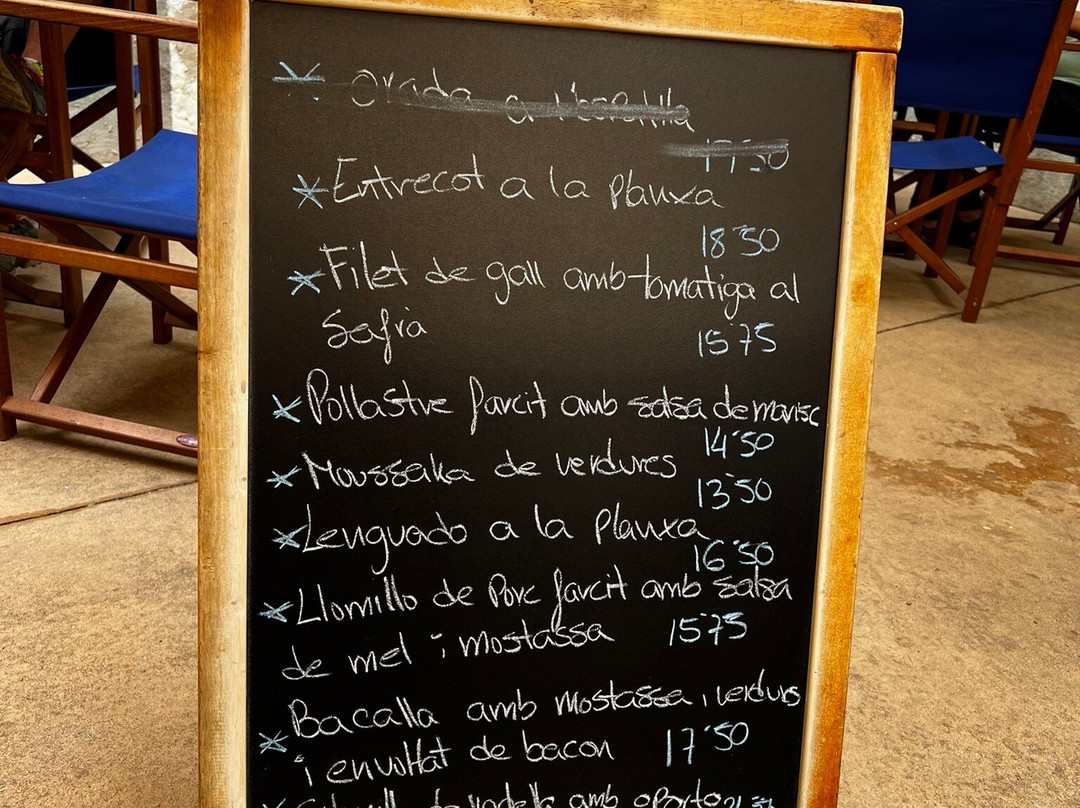 * Orada a l'espatlla
17'50
* Entrecot a la planxa
18'50
* Filet de gall amb tomatiga al
Safrà
15'75
* Pollastre farcit amb salsa de marisc
14'50
* Moussaka de verdures
13'50
* Lenguado a la Planxa
16'50
* Llomillo de Porc farcit amb salsa
de mel i mostassa 15'75
* Bacalla amb mostassa, verdurs
i envoltat de bacon 17'50
amb oporto